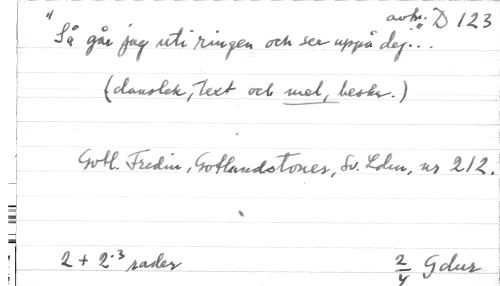 avkr. D 123
"Så går jag uti ringen och ser uppå dej..."
(danslek, text och mel, beskr.)
Gotl. Fredin, Gotlandstoner, Sv. Ldm, nr 212.
2 + 2·3 rader
2/4 Gdur